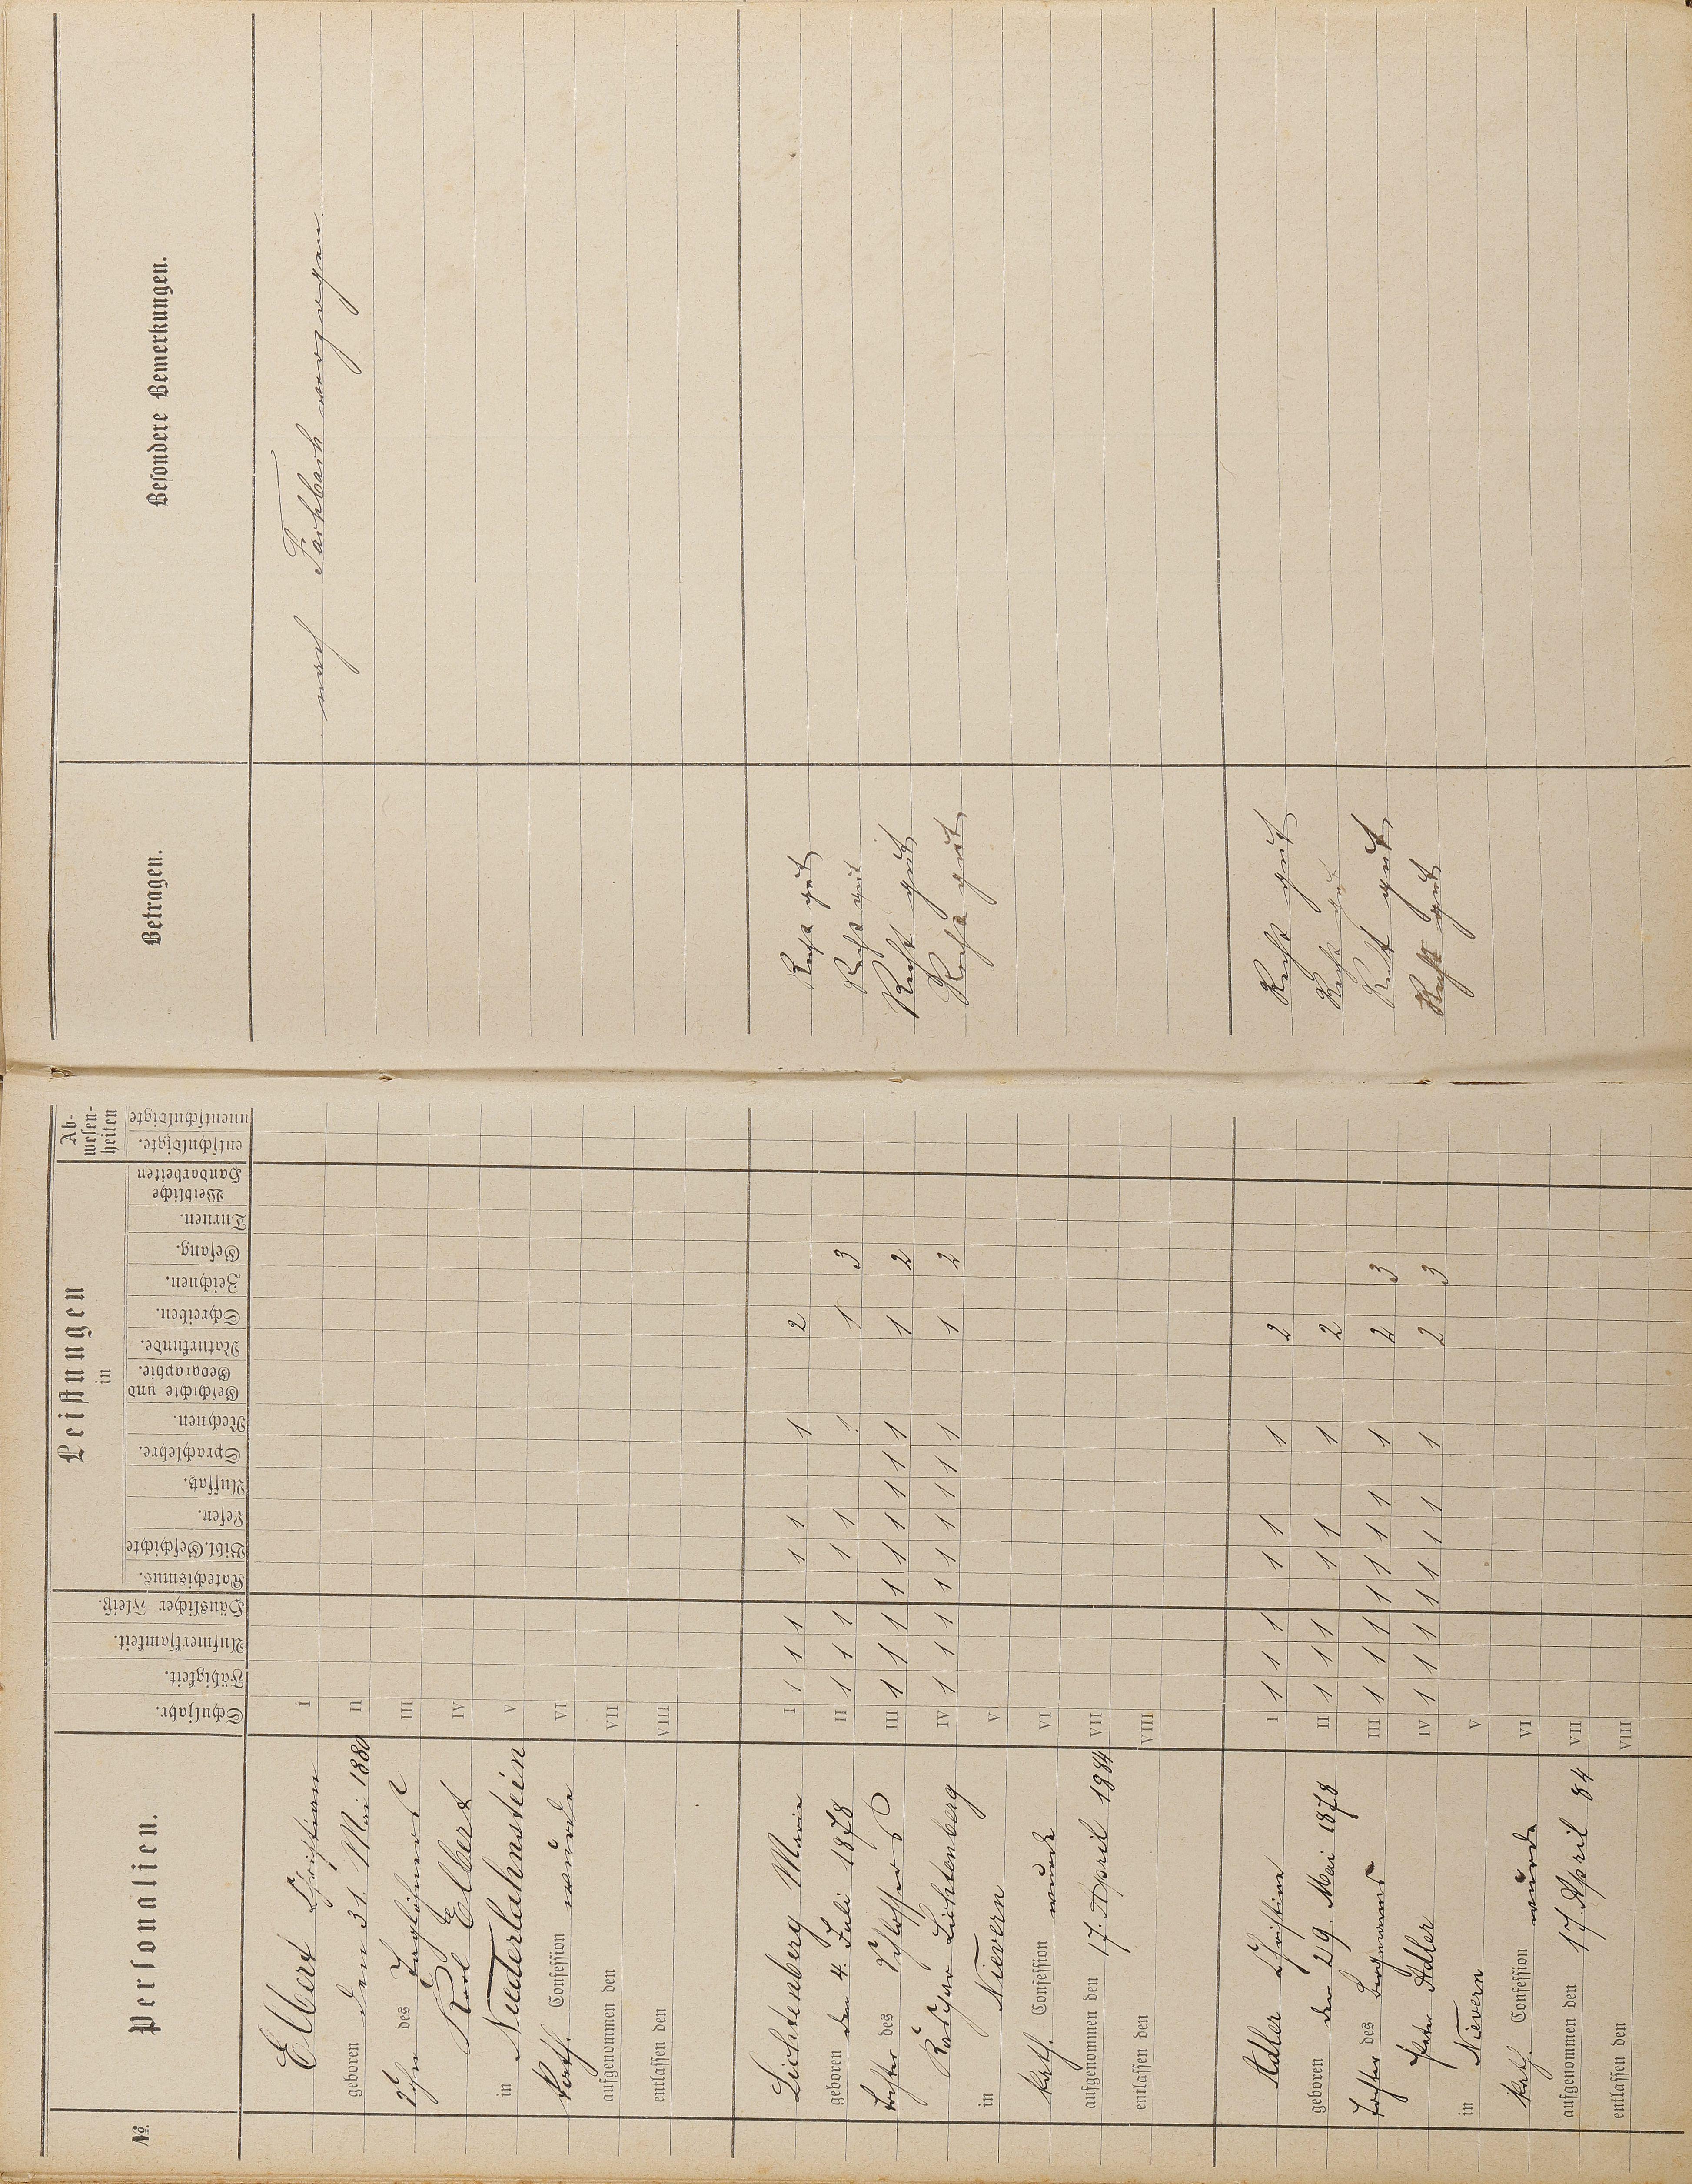 №.
Personalien.
Schuljahr.
Fähigkeit.
Aufmerksamkeit.
Häuslicher Fleiß.
Leistungen
in
Katechismus.
Bibl. Geschichte
Lesen.
Aufsatz.
Sprachlehre.
Rechnen.
Geschichte und
Geographie.
Naturkunde.
Schreiben.
Zeichnen.
Gesang.
Turnen.
Weibliche
Handarbeiten
Ab-
wesen-
heiten
entschuldigte.
unentschuldigte
Betragen.
Besondere Bemerkungen.
Elbert Christian I
nach Fachbach verzogen
geboren den 31. Mai 1880 II
Sohn des Taglöhners III
Karl Elbert IV
in Niederlahnstein V
kath. Confession wurde VI
aufgenommen den VII
entlassen den VIII
Lichtenberg Marie I 1 1 1 1 1 1 2 Recht gut
geboren den 4. Juli 1878 II 1 1 1 1 1 1 1 3 Recht gut
Tochter des Schlossers III 1 1 1 1 1 1 1 1 1 1 2 Recht gut
Lichtenberg IV 1 1 1 1 1 1 1 1 1 1 2 Recht gut
in Nievern V
kath. Confession wurde VI
aufgenommen den 17. April 1884 VII
entlassen den VIII
Adler Christine I 1 1 1 1 1 1 2 Recht gut
geboren den 29. Mai 1878 II 1 1 1 1 1 1 2 Recht gut
Tochter des Bergmanns III 1 1 1 1 1 1 1 1 2 3 Recht gut
Peter Adler IV 1 1 1 1 1 1 1 1 2 3 Recht gut
in Nievern V
kath. Confession wurde VI
aufgenommen den 17. April 84 VII
entlassen den VIII